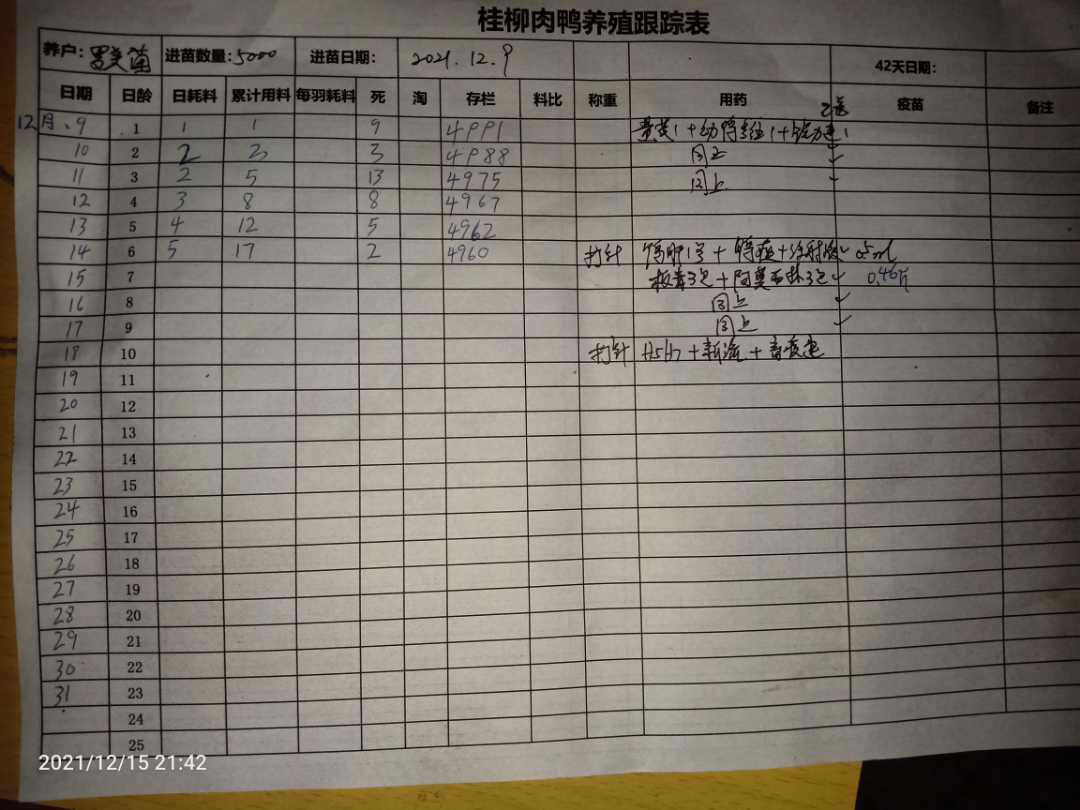 桂柳肉鸭养殖跟踪表
养户: 进苗数量:5000 进苗日期: 2021.12.9 42天日期:
日期 日龄 日耗料 累计用料 每羽耗料 死 淘 存栏 料比 称重 用药 疫苗 备注
12月.9 1 1 1 9 4991
10 2 2 3 3 4988 同上 ✓
11 3 2 5 13 4975 同上 ✓
12 4 3 8 8 4967
13 5 4 12 5 4962
14 6 5 17 2 4960 打针
15 7 +阿莫西林3包 ✓ 0.46斤
16 8 同上 ✓
17 9 同上 ✓
18 10 打针 H5H7+新流+
19 11
20 12
21 13
22 14
23 15
24 16
25 17
26 18
27 19
28 20
29 21
30 22
31 23
24
25
2021/12/15 21:42